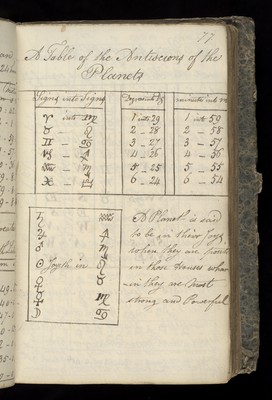 77
A Table of the Antiscions of the
Planets
Signs into Signs
♈ into ♍
♉ – ♌
♊ – ♋
♑ – ♐
♒ – ♏
♓ – ♎
1 into 29
2 – 28
3 – 27
4 – 26
5 – 25
6 – 24
minutes into m
1 into 59
2 – 58
3 – 57
4 – 56
5 – 55
6 – 54
♄ ♒
♃ ♐
♂ ♏
☉ Joyeth in ♌
♀ ♉
☿ ♍
☽ ♋
A Planet is said
to be in their Joys,
when they are posited
in those Houses where
in they are most
strong and Powerful